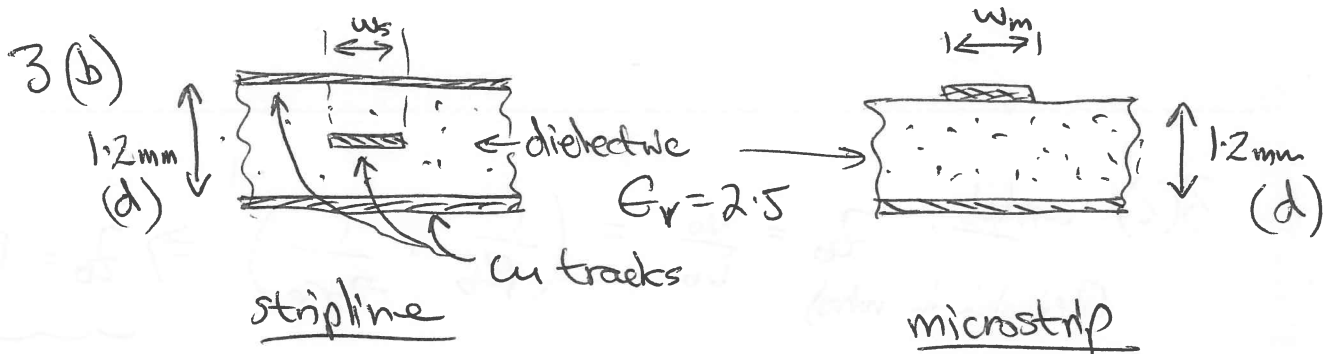 3 (b)
ws
1.2mm
(d)
dielectric
Er = 2.5
cu tracks
stripline
wm
1.2mm
(d)
microstrip